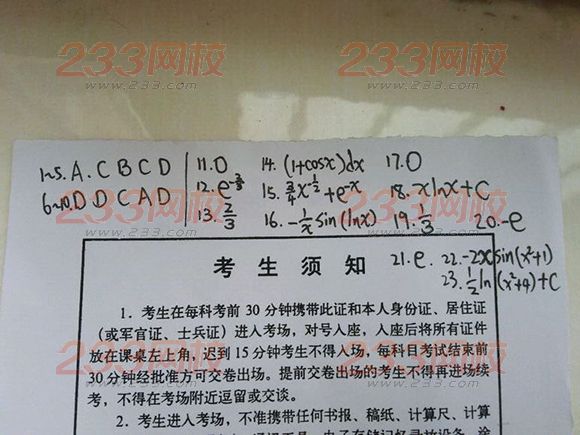 233网校 233网校 233网校
www.233.com www.233.com www.233.com
1~5. A. C B C D 11. 0 14. (1+cosx)dx 17. 0
6~10. D D C A D 12. e^-2/3 15. 3/4 x^-1/2 + e^-x 18. -xlnx+C
13. 2/3 16. -1/x sin(lnx) 19. 1/3 20. -e
21. e. 22. -2xsin(x²+1)
23. 1/2 ln(x²+4)+C
考生须知
1. 考生在每科考前 30 分钟携带此证和本人身份证、居住证
(或军官证、士兵证) 进入考场，对号入座，入座后将所有证件
放在课桌左上角，迟到 15 分钟考生不得入场，每科目考试结束前
30 分钟经批准方可交卷出场。提前交卷出场的考生不得再进场续
考，不得在考场附近逗留或交谈。
2. 考生进入考场，不准携带任何书报、稿纸、计算尺、计算